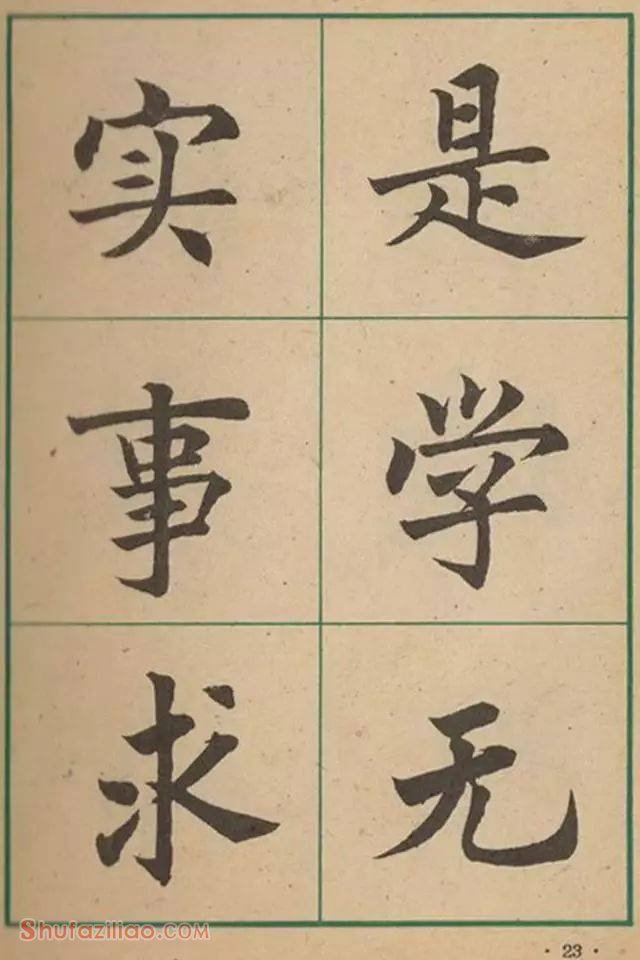 实事求
是学无
Shufaziliao.com
·23·